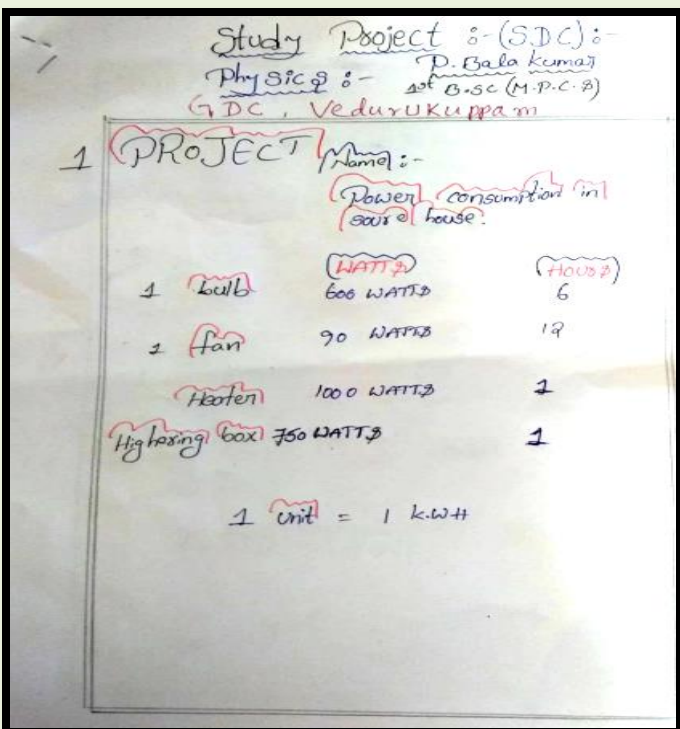 Study Project :- (S.D.C) :-
P. Bala kumar
Physics :- 1st B.sc (M.P.C.S)
GDC, Vedurukuppam
1 PROJECT Name :-
Power consumption in
house.
WATTS Hours
1 bulb 600 WATTS 6
1 fan 90 WATTS 12
Heater 1000 WATTS 1
box 750 WATTS 1
1 unit = 1 K.WH